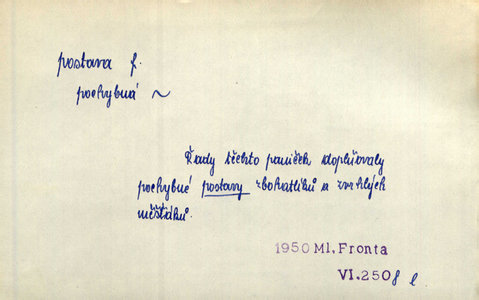 postava f.
pochybná ~
Řady těchto paniček doplňovaly
pochybné postavy zbohatlíků a zvrhlých
měšťáků.
1950 Ml. Fronta
VI. 250